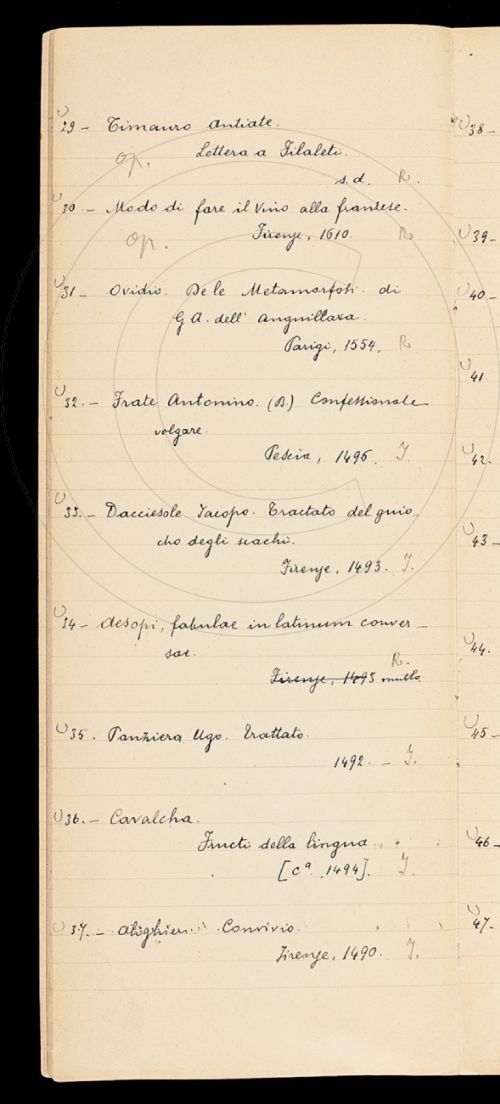 29 - Timauro Antiate.
Op. Lettera a Filaleti.
s. d. R.
30 - Modo di fare il Vino alla franzese.
Op. Firenze, 1610. R
31 - Ovidio. De le Metamorfosi di
G. A. dell' Anguillara.
Parigi, 1554. R
32. - Frate Antonino. (B.) Confessionale
volgare.
Pescia, 1495. I.
33. - Dacciesole Jacopo. Tractato del guio-
cho degli scachi.
Firenze, 1493. I.
34 - Aesopi, fabulae in latinum conver-
sae.
R.
Firenze, 1493 mutilo
35. Panziera Ugo. Trattato.
1492. - I.
36. - Cavalcha.
Fructi della lingua.
[ca. 1494]. I.
37. - Alighieri Convivio.
Firenze, 1490. I.
U38 -
U39 -
U40 -
U41
U42.
U43 -
U44.
U45 -
U46 -
U47.
C